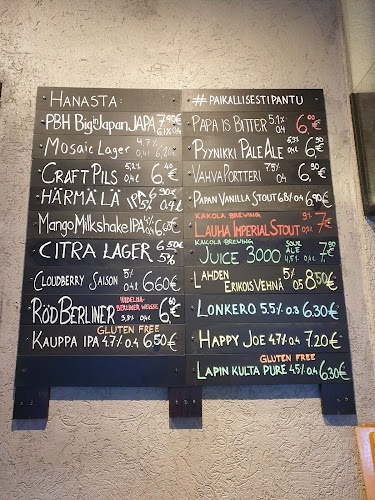 HANASTA:
PBH Big in Japan JAPA 7,90€ 6.1% 0.4
Mosaic Lager 4.7% 0.4l 6,20€
CRAFT PILS 5,2% 0.4 6 40 €
HÄRMÄLÄ IPA 6 90 € 5% 0.4l
Mango Milkshake IPA 4% 0.4 6.60€
CITRA LAGER 6.50€ 5%
CLOUDBERRY SAISON 5% 0.4l 6.60€
RÖD BERLINER VADELMA- BERLINER WEISSE 3,8% 0,4l 6 60 €
GLUTEN FREE
KAUPPA IPA 4.7% 0.4 6.50€
#PAIKALLISESTIPANTU
PAPA IS BITTER 5.2% 0.4 6 00 €
PYYNIKKI PALE ALE 5% 0.4 6,50€
VAHVA PORTTERI 7.5% 0.4 6 90 €
PAPAN VANILLA STOUT 6.8% 0.4 6,90€
KAKOLA BREWING
LAUHA IMPERIAL STOUT 9% 0.2l 7€
KAKOLA BREWING
JUICE 3000 SOUR ALE 4,5% 0.4l 7 90 €
LAHDEN ERIKOIS VEHNÄ 5% 0.5 8,50€
LONKERO 5.5% 0.3 6.30€
HAPPY JOE 4.7% 0.4 7.20€
GLUTEN FREE
LAPIN KULTA PURE 4.5% 0.4 6.30€